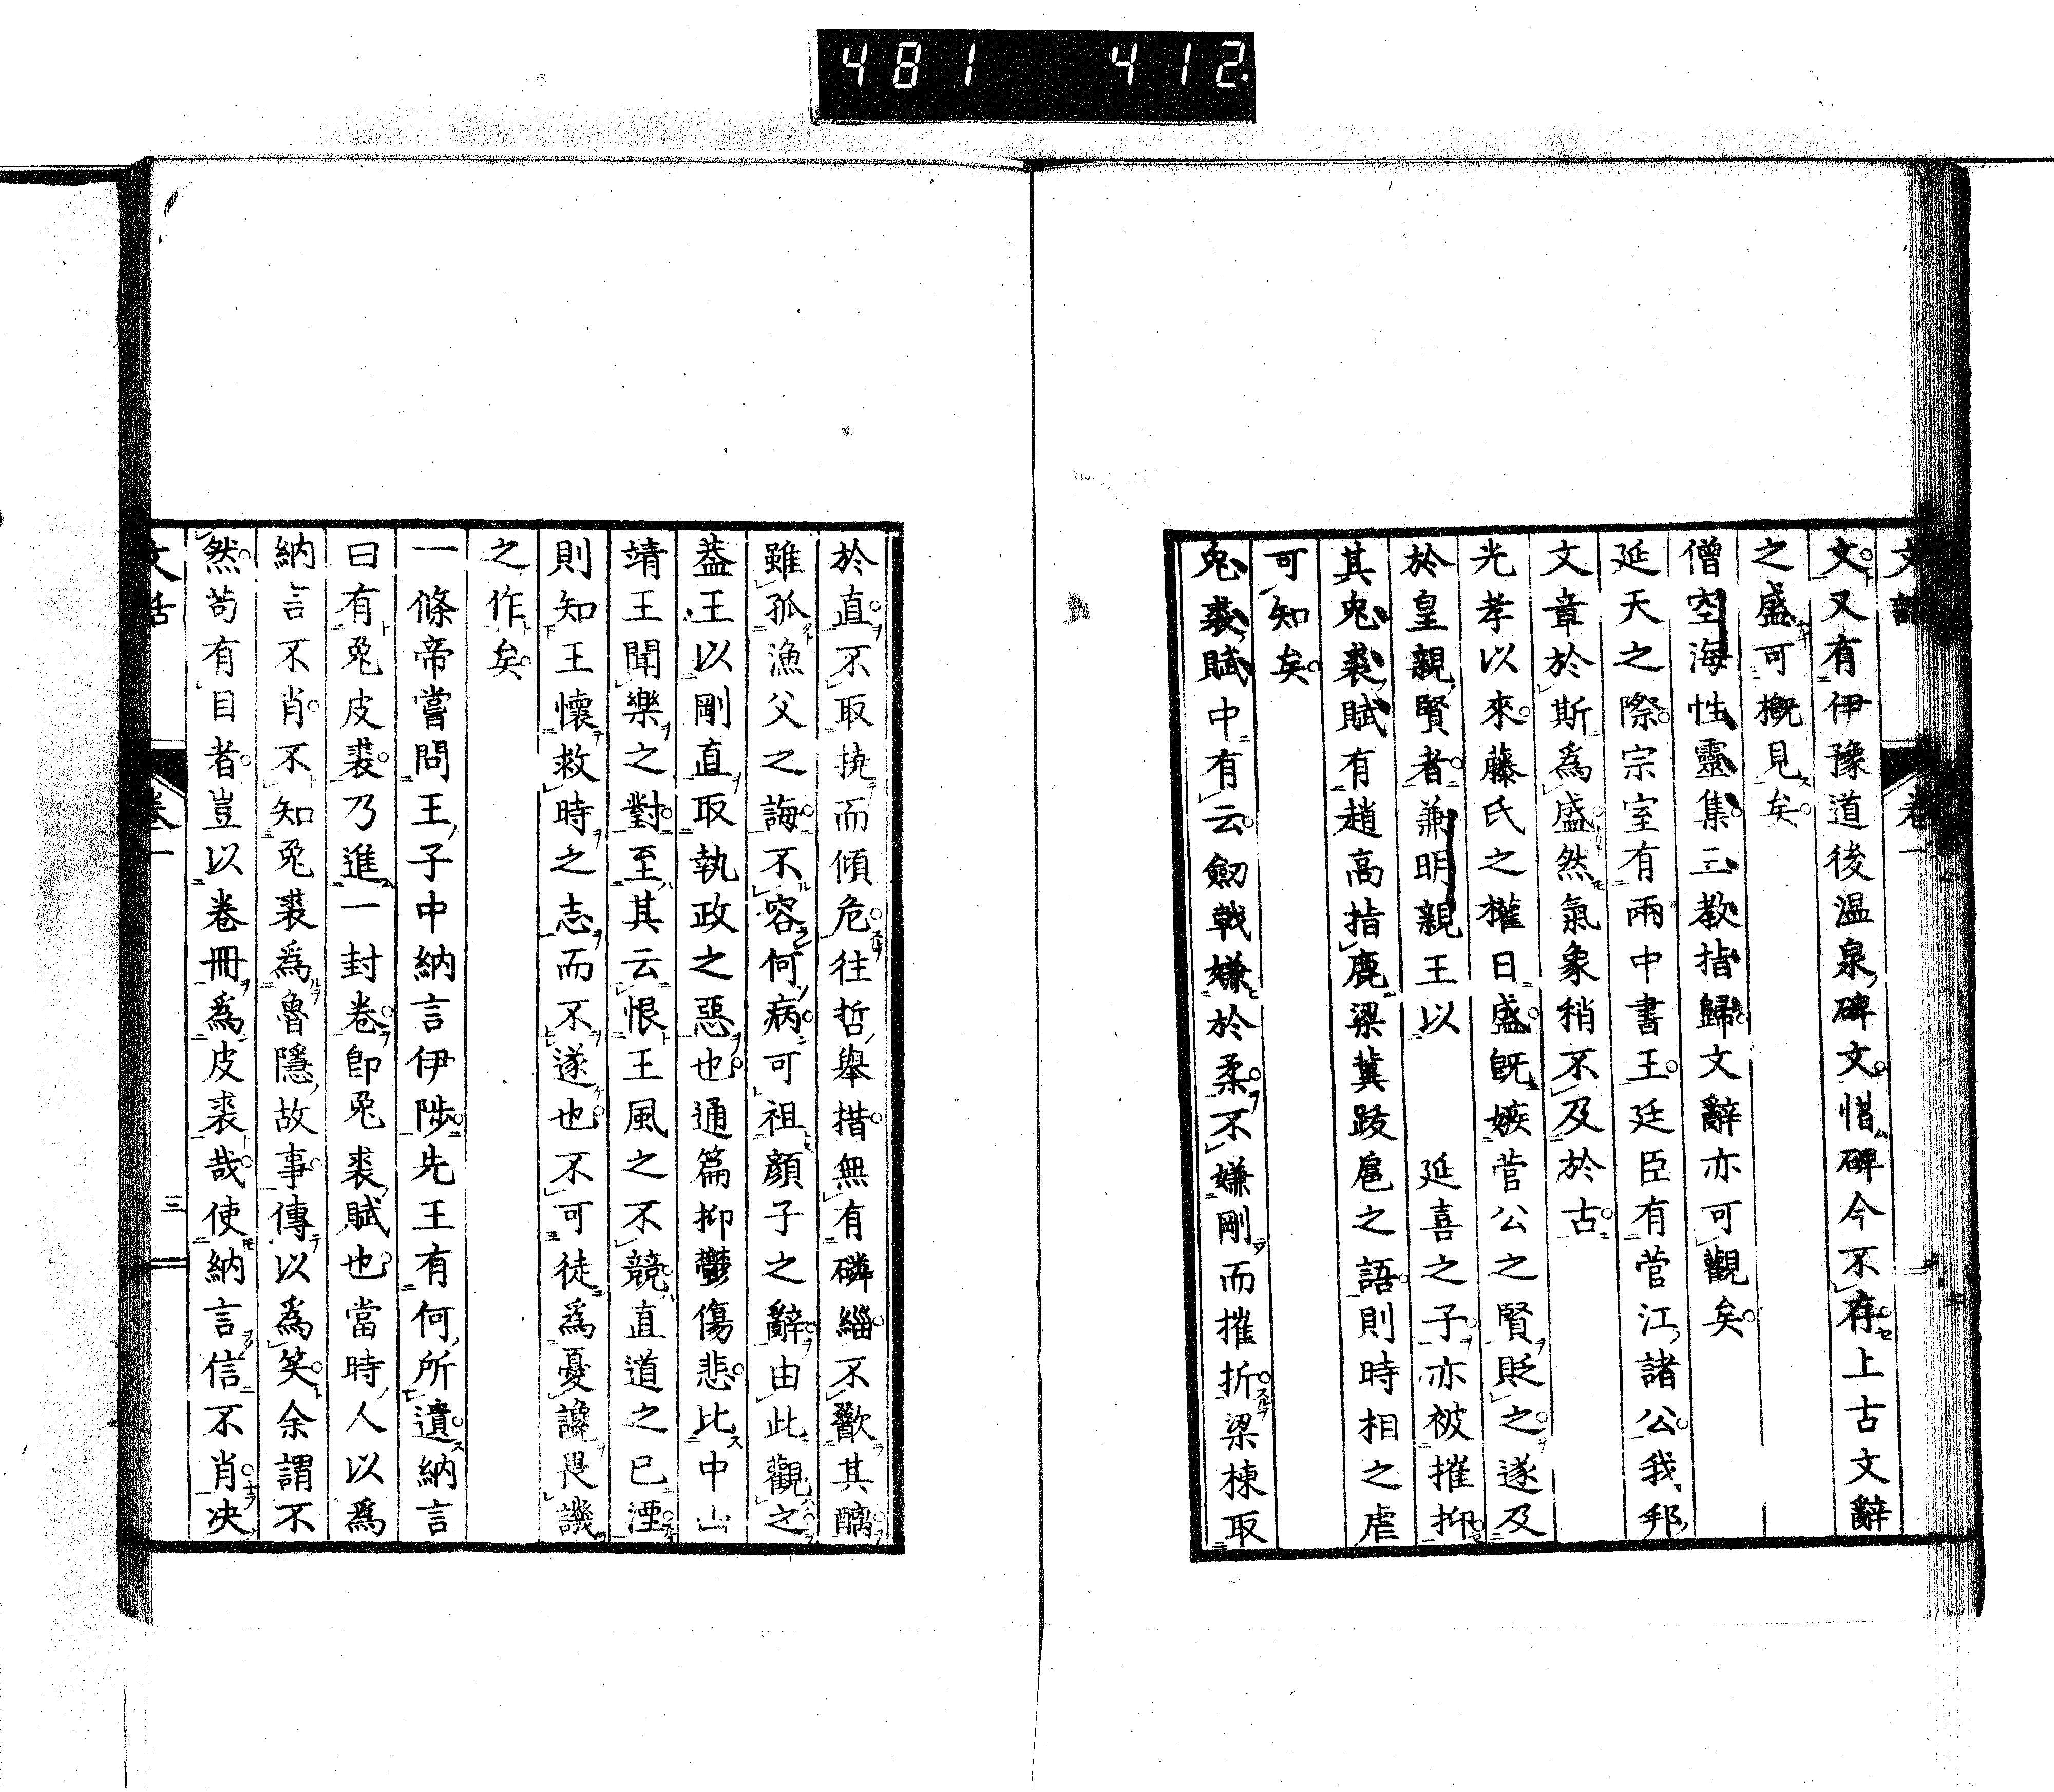 481 412
文話 卷一
文又有伊豫道後温泉碑文惜碑今不存上古文辭
之盛可概見矣
僧空海性靈集三教指歸文辭亦可觀矣
延天之際宗室有兩中書王廷臣有菅江諸公我邦
文章於斯爲盛然氣象稍不及於古
光孝以來藤氏之權日盛既嫉菅公之賢貶之遂及
於皇親賢者兼明親王以 延喜之子亦被摧抑
其兔裘賦有趙高指鹿梁冀跋扈之語則時相之虐
可知矣
兔裘賦中有云劒戟嫌於柔不嫌剛而摧折梁棟取
於直不取撓而傾危往哲舉措無有磷緇不歠其醨
雖孤漁父之誨不容何病可祖顏子之辭由此觀之
葢王以剛直取執政之惡也通篇抑鬱傷悲比中山
靖王聞樂之對至其云恨王風之不競直道之已湮
則知王懷救時之志而不遂也不可徒爲憂讒畏譏
之作矣
一條帝嘗問王子中納言伊陟先王有何所遺納言
曰有兔皮裘乃進一封卷卽兔裘賦也當時人以爲
納言不肖不知兔裘爲魯隱故事傳以爲笑余謂不
然苟有目者豈以卷冊爲皮裘哉使納言信不肖决
文話 卷一 三